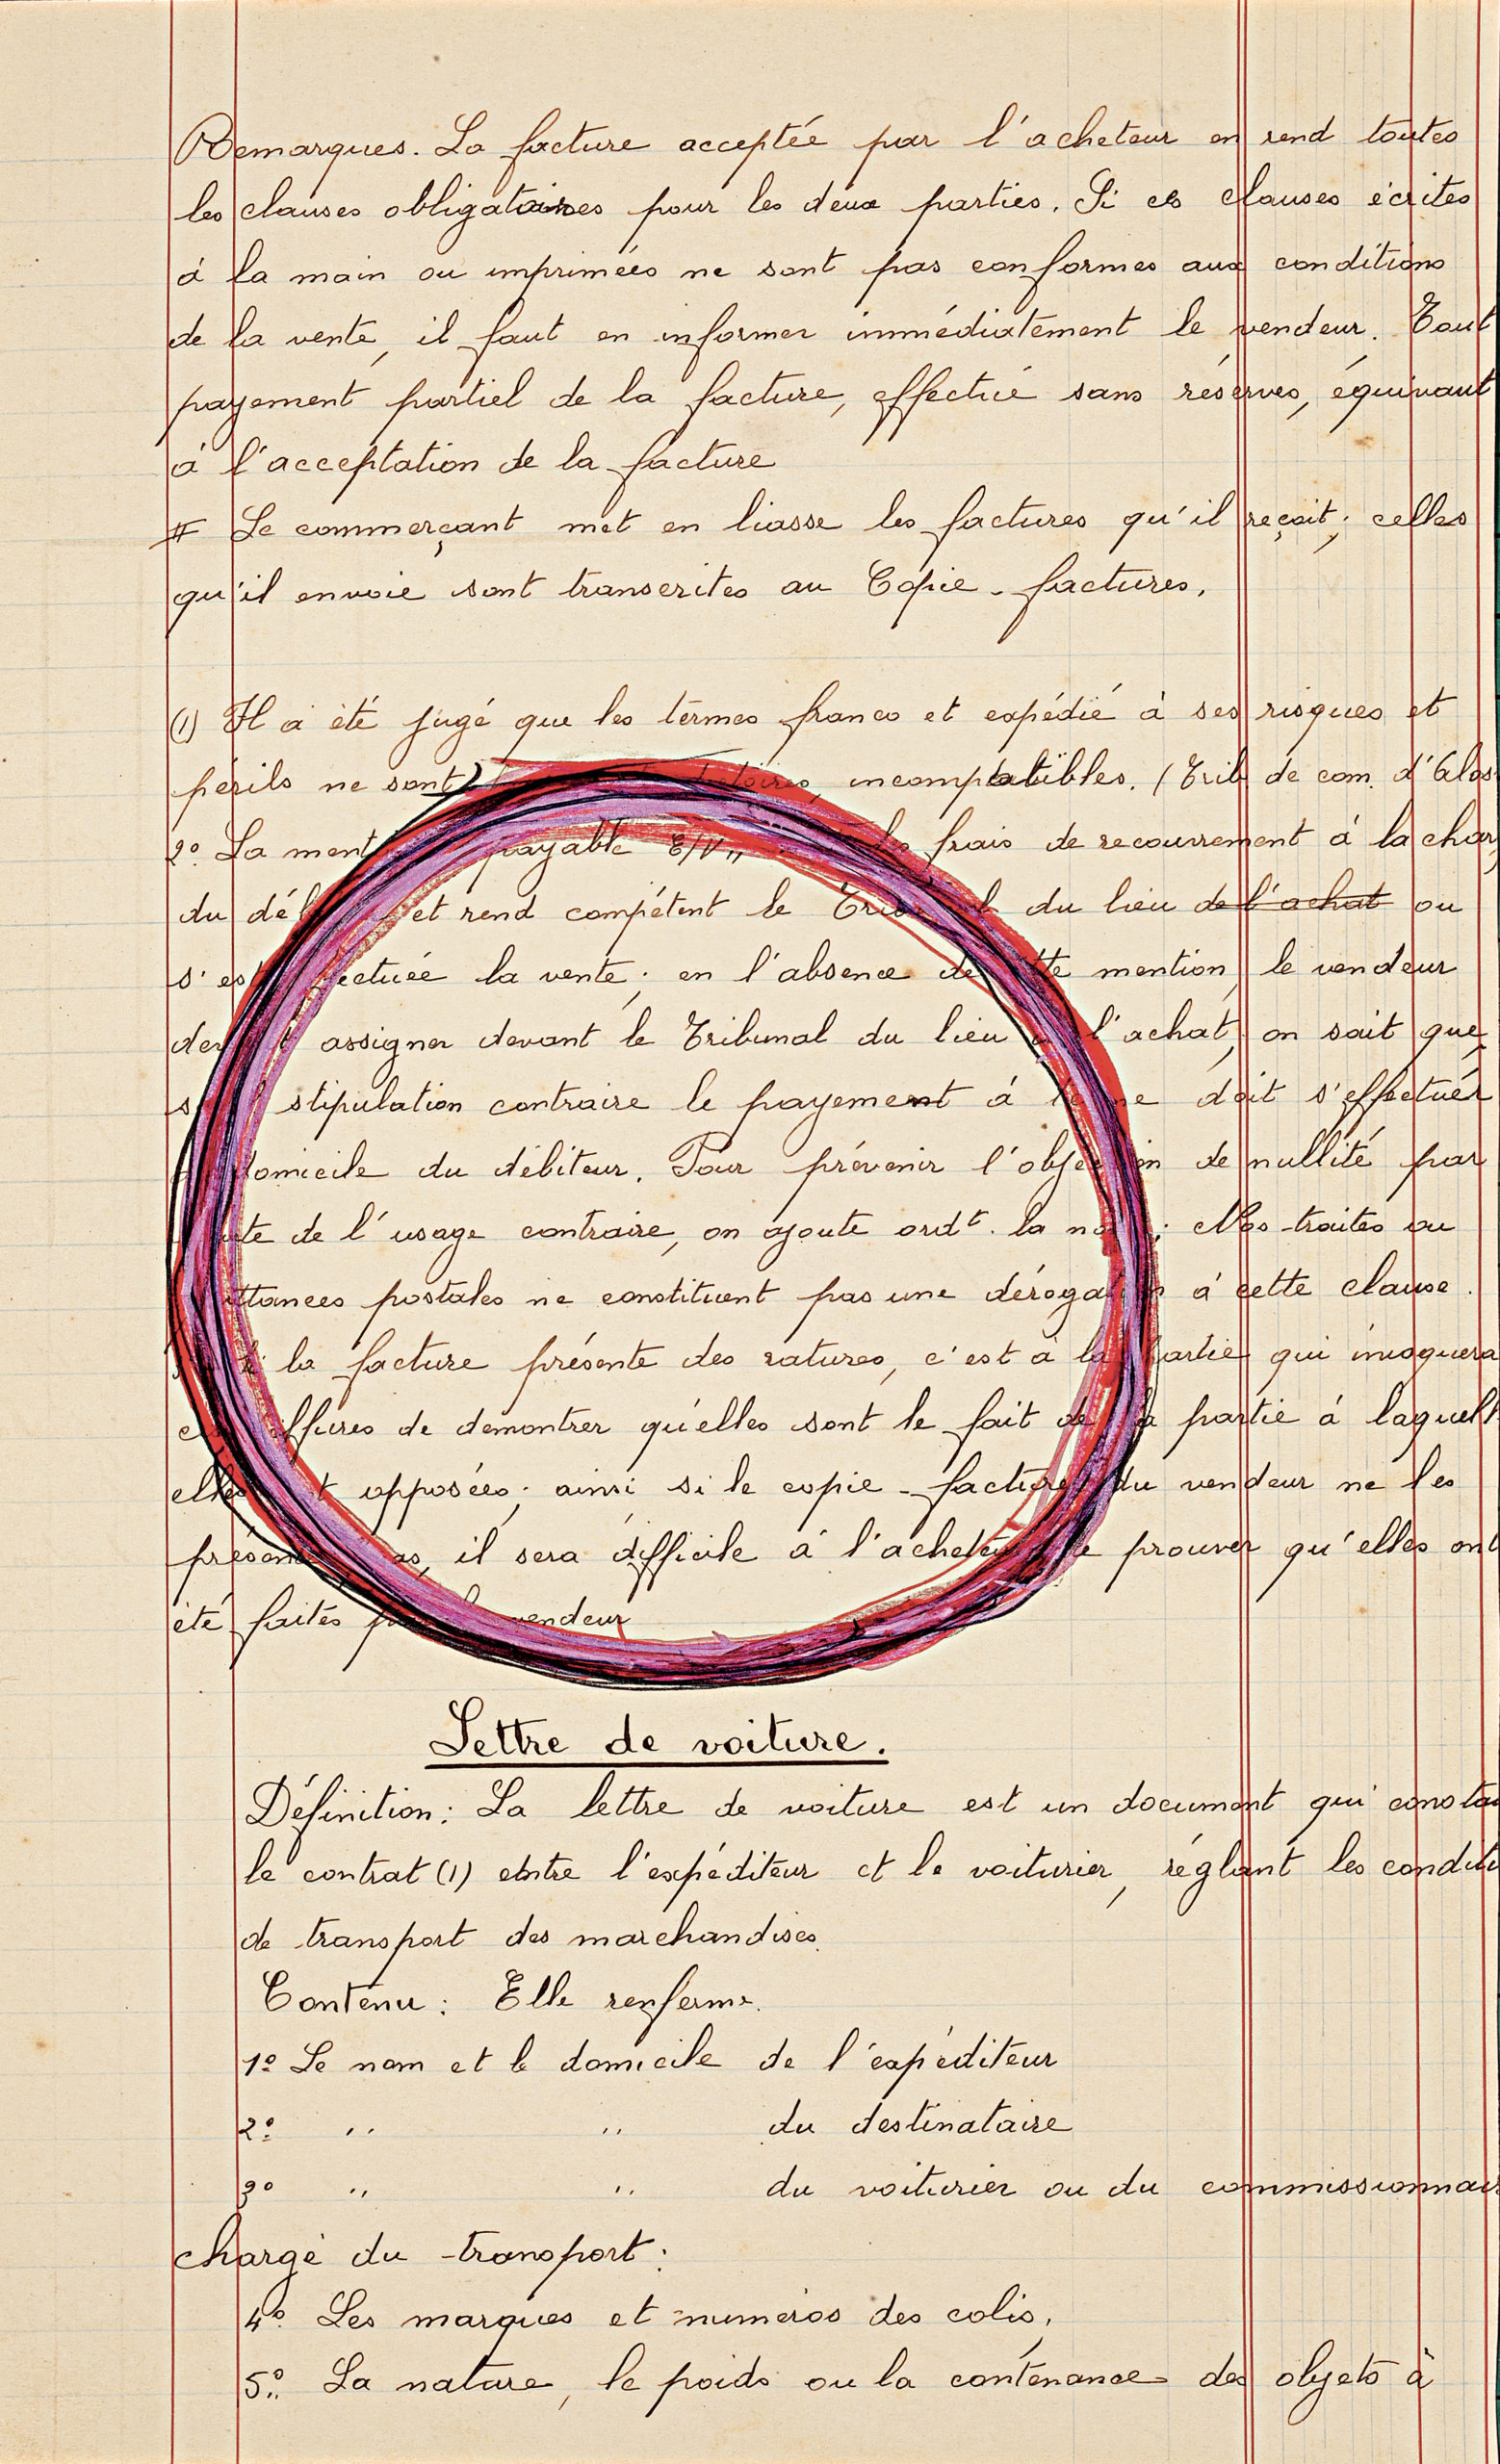 Remarques. La facture acceptée par l'acheteur en rend toutes
les clauses obligatoires pour les deux parties. Si ces clauses écrites
à la main ou imprimées ne sont pas conformes aux conditions
de la vente, il faut en informer immédiatement le vendeur. Tout
payement partiel de la facture, effectué sans réserves, équivaut
à l'acceptation de la facture
# Le commerçant met en liasse les factures qu'il reçoit; celles
qu'il envoie sont transcrites au Copie-factures.
(1) Il a été jugé que les termes franco et expédié à ses risques et
périls ne sont incompatibles. (Trib de com. d'Alos
2° La payable E/V,, frais de recouvrement à la char
du et rend compétent le du lieu de l'achat ou
s'est la vente; en l'absence de mention, le vendeur
assigner devant le Tribunal du lieu l'achat, on sait que,
stipulation contraire le payement à doit s'effectuer
domicile du débiteur. Pour prévenir l'objection de nullité par
de l'usage contraire, on ajoute ordt. la : Nos traites ou
postales ne constituent pas une dérogation à cette clause.
la facture présente des ratures, c'est à la partie qui invoquera
de démontrer qu'elles sont le fait de la partie à laquelle
elles opposées; ainsi si le copie-factures du vendeur ne les
il sera difficile à l'acheteur de prouver qu'elles ont
été faites vendeur
Lettre de voiture.
Définition: La lettre de voiture est un document qui consta
le contrat (1) entre l'expéditeur et le voiturier, réglant les condit
de transport des marchandises.
Contenu: Elle renferme.
1° Le nom et le domicile de l'expéditeur
2° ,, ,, du destinataire
3° ,, ,, du voiturier ou du commissionnair
chargé du transport:
4° Les marques et numéros des colis,
5° La nature, le poids ou la contenance des objets à